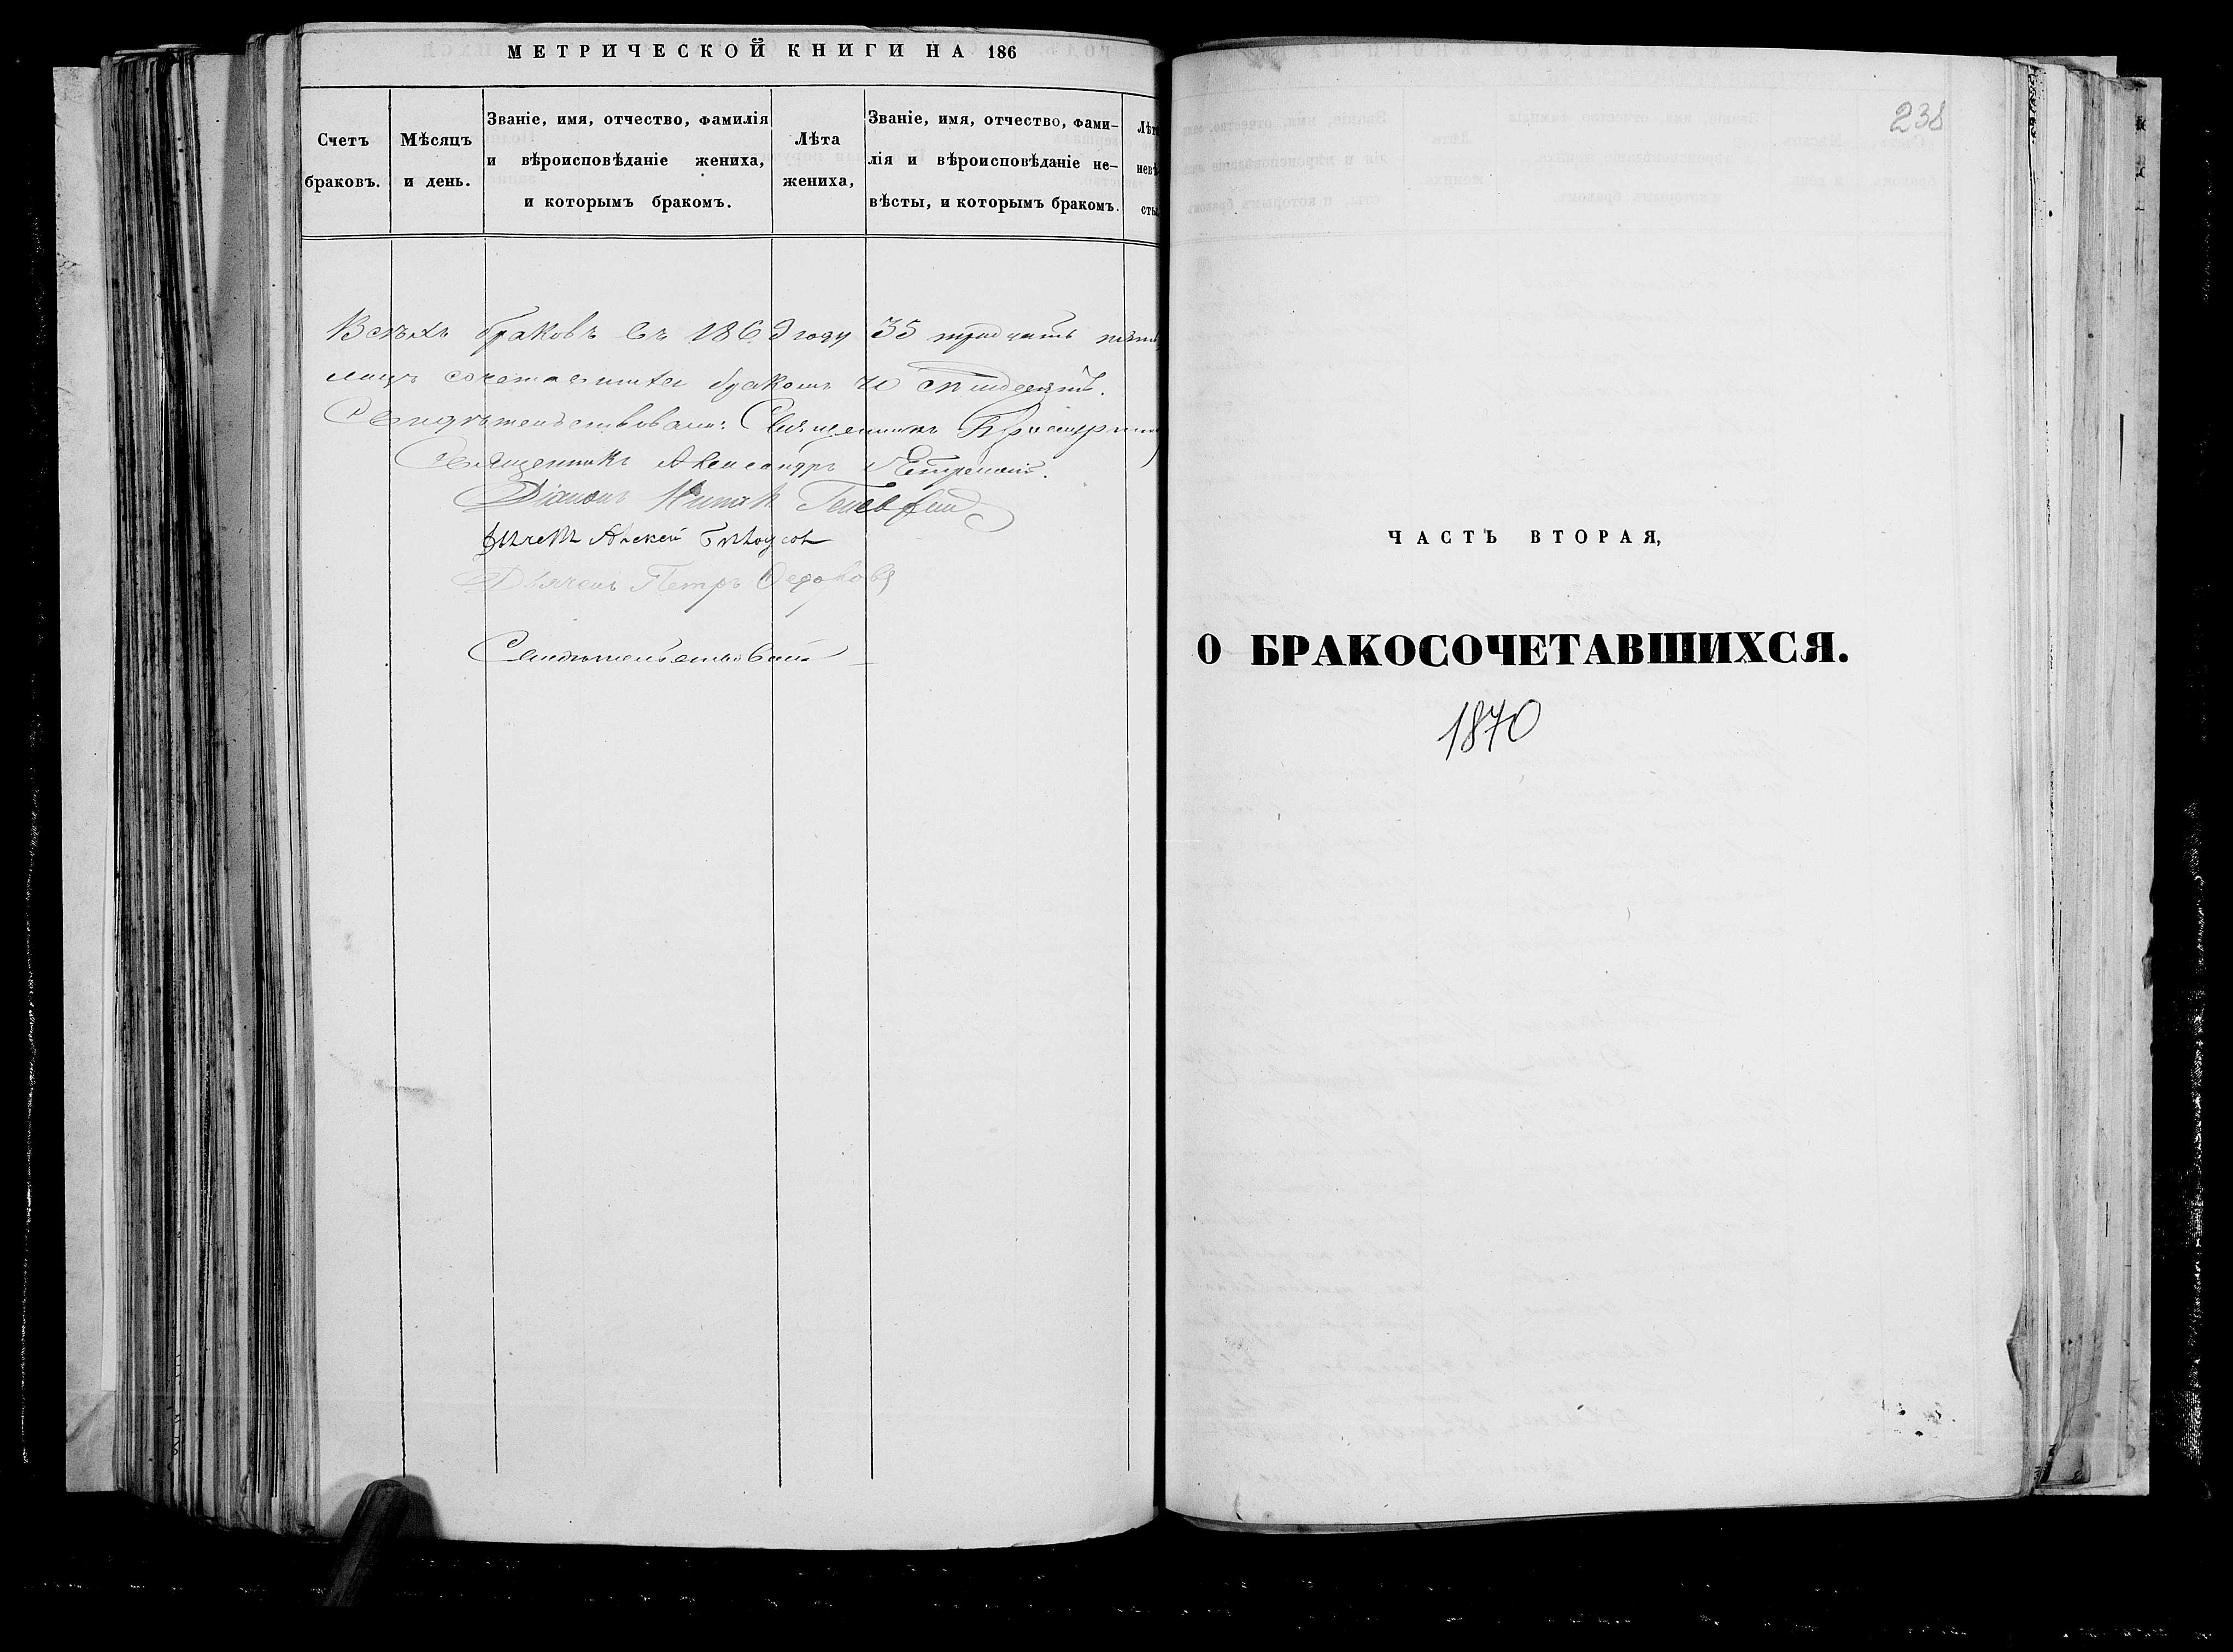 МЕТРИЧЕСКОЙ КНИГИ НА 186
Счетъ браковъ.
Мѣсяцъ и день.
Званіе, имя, отчество, фамилія
и вѣроисповѣданіе жениха,
и которымъ бракомъ.
Лѣта жениха,
Званіе, имя, отчество, фами-
лія и вѣроисповѣданіе не-
вѣсты, и которымъ бракомъ.
Лѣта
невѣ
сты
Всѣхъ браковъ въ 1869 году 35 тридцать пять
лицъ сочетавшихся бракомъ 70
Свидѣтельствовали: Священникъ
Священникъ Александръ
Діаконъ
Алексей
Дьячекъ Петръ
238
ЧАСТЬ ВТОРАЯ,
О БРАКОСОЧЕТАВШИХСЯ.
1870